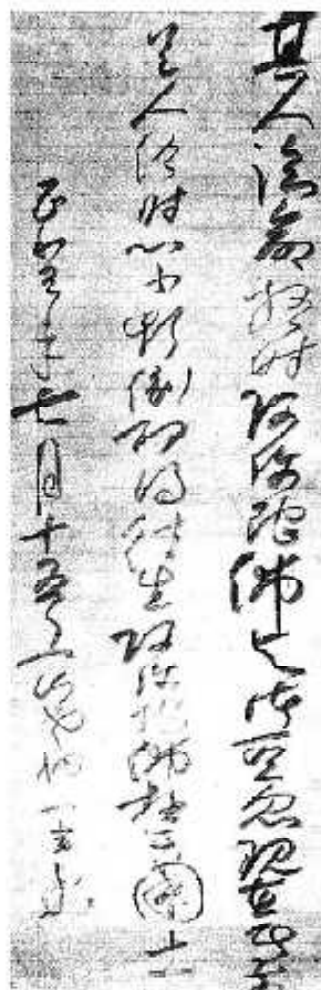 其人臨命終時阿弥陀佛与諸聖衆現在其前
是人終時心不顛倒即得往生阿弥陀佛極楽國土
七月十五